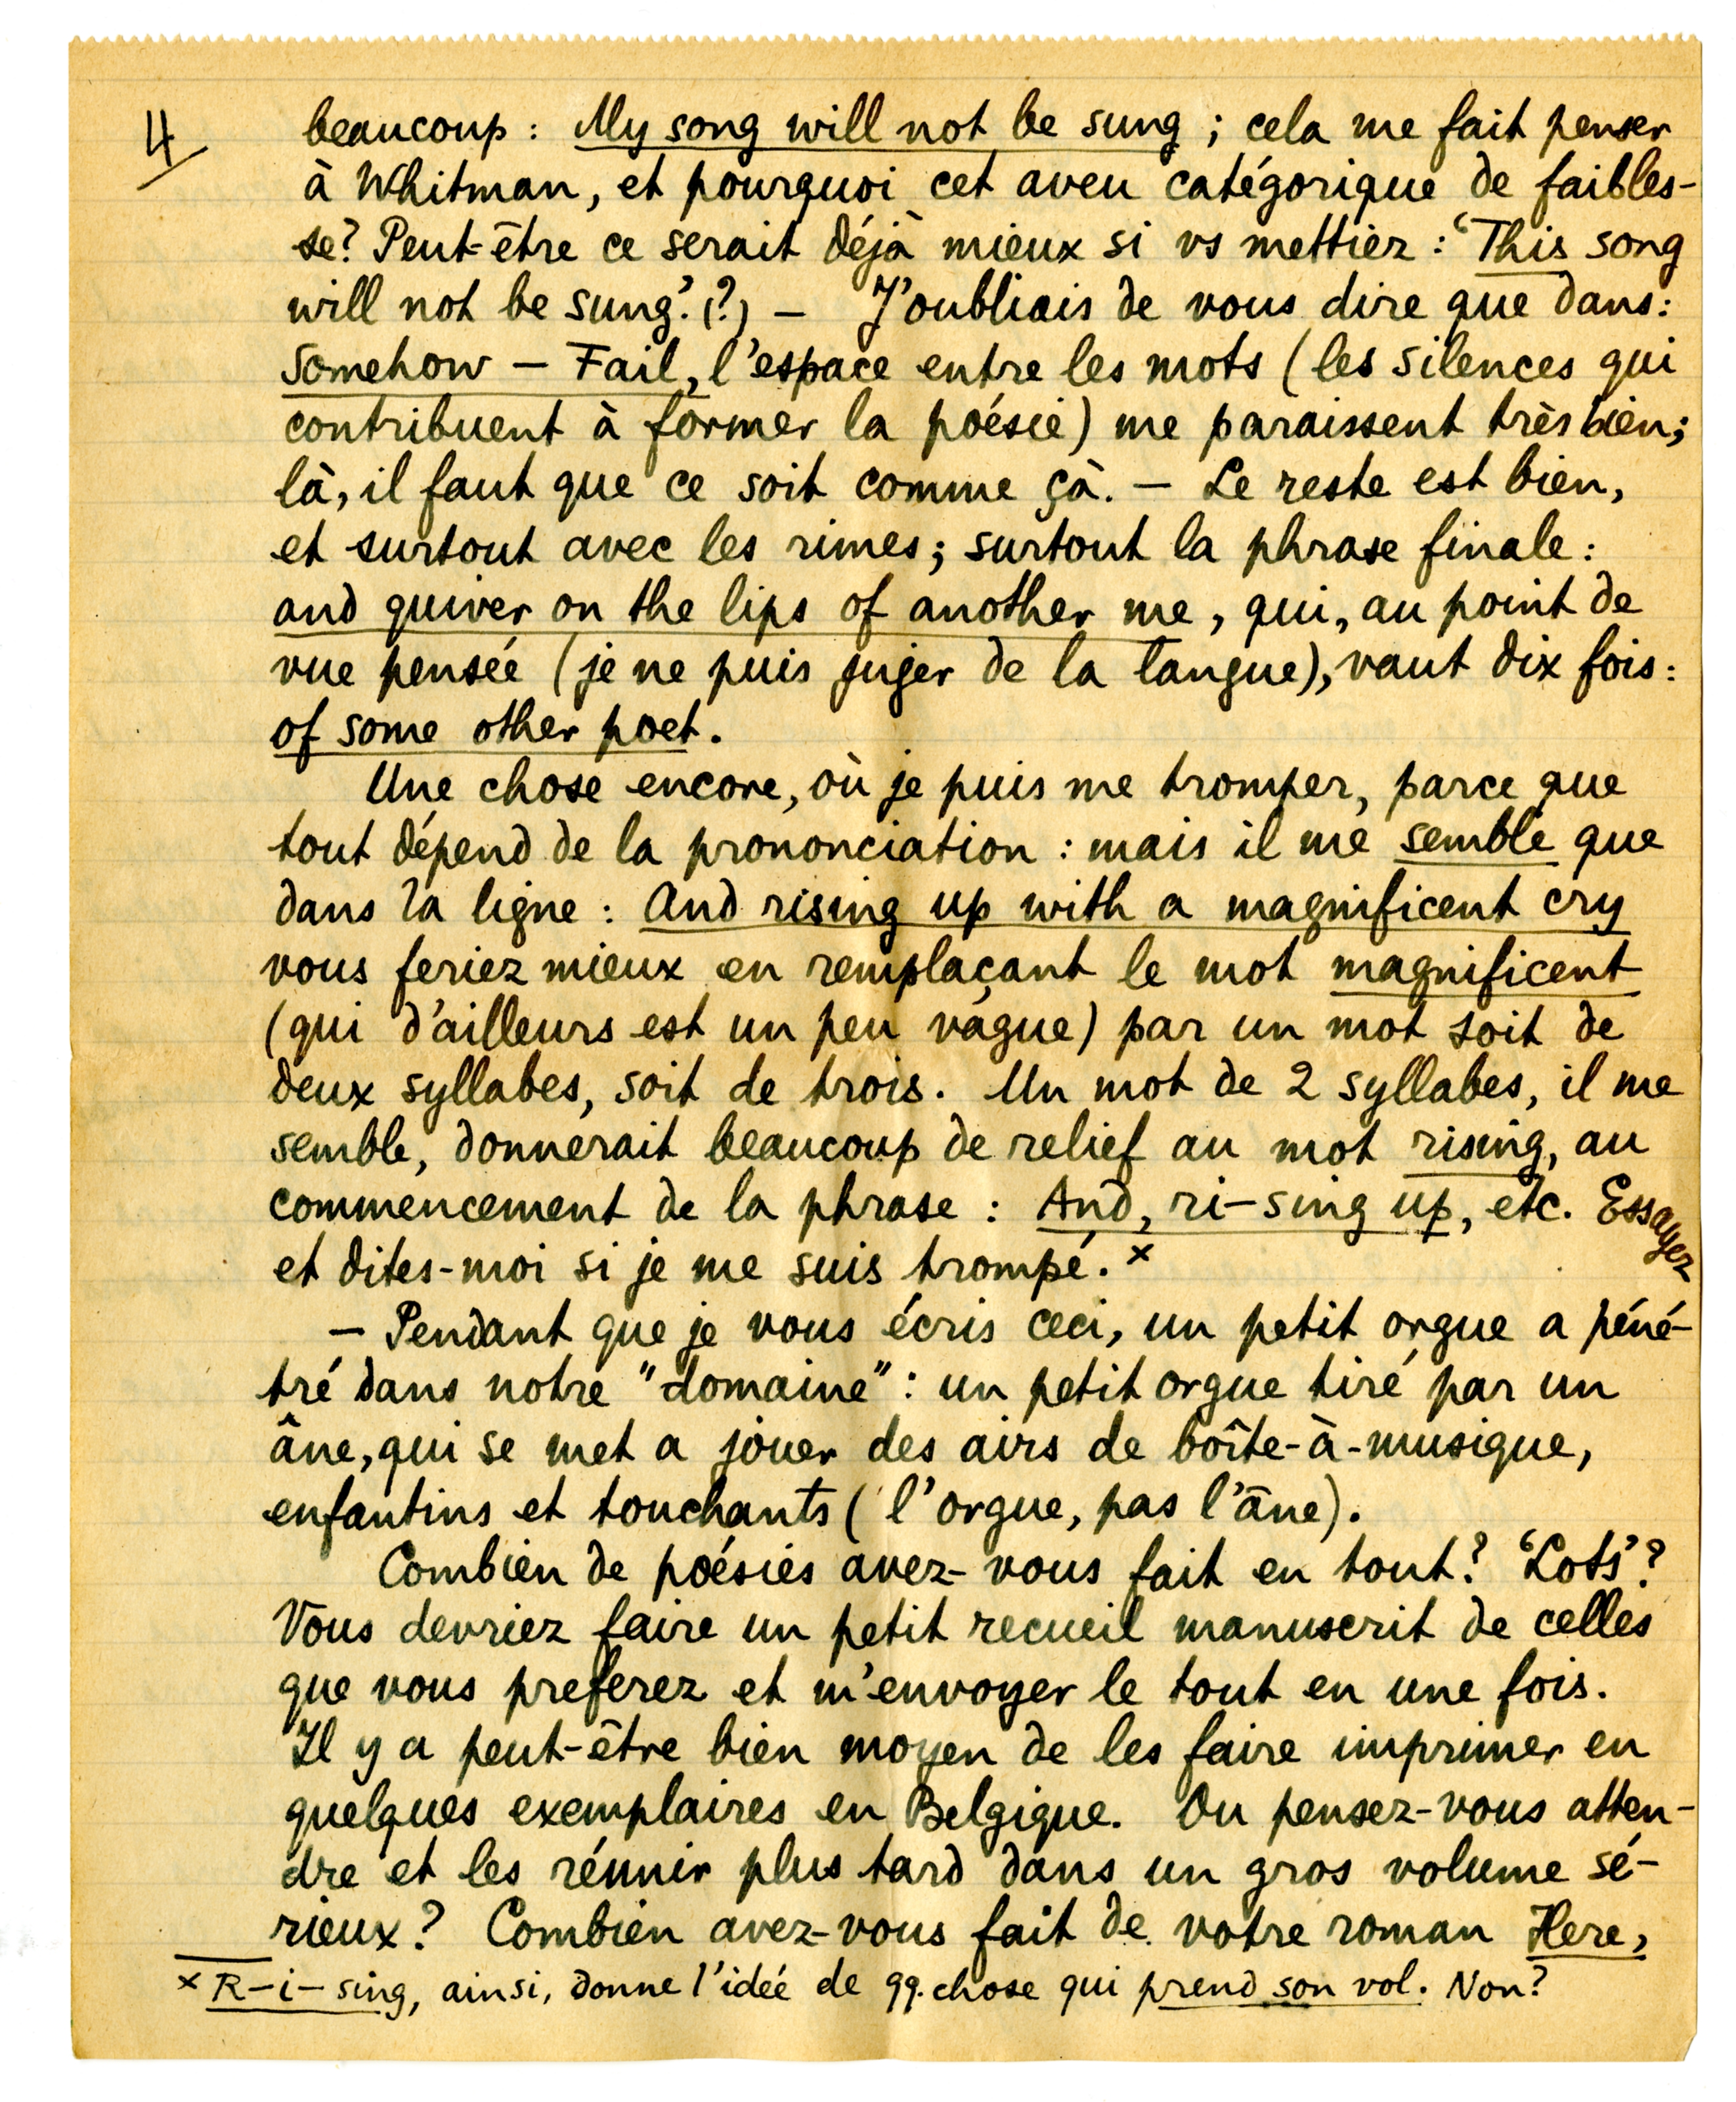 4
beaucoup : My song will not be sung ; cela me fait penser
à Whitman, et pourquoi cet aveu catégorique de faibles-
se? Peut-être ce serait déjà mieux si vs mettiez : 'This song
will not be sung'. (?) — J'oubliais de vous dire que dans :
Somehow — Fail, l'espace entre les mots (les silences qui
contribuent à former la poésie) me paraissent très bien;
là, il faut que ce soit comme çà. — Le reste est bien,
et surtout avec les rimes; surtout la phrase finale :
and quiver on the lips of another me, qui, au point de
vue pensée (je ne puis juger de la langue), vaut dix fois :
of some other poet.
Une chose encore, où je puis me tromper, parce que
tout dépend de la prononciation : mais il me semble que
dans la ligne : And rising up with a magnificent cry
vous feriez mieux en remplaçant le mot magnificent
(qui d'ailleurs est un peu vague) par un mot soit de
deux syllabes, soit de trois. Un mot de 2 syllabes, il me
semble, donnerait beaucoup de relief au mot rising, au
commencement de la phrase : And, ri-sing up, etc. Essayez
et dites-moi si je me suis trompé. x
— Pendant que je vous écris ceci, un petit orgue a péné-
tré dans notre "domaine" : un petit orgue tiré par un
âne, qui se met a jouer des airs de boîte-à-musique,
enfantins et touchants (l'orgue, pas l'âne).
Combien de poésies avez-vous fait en tout? 'Lots'?
Vous devriez faire un petit recueil manuscrit de celles
que vous preferez et m'envoyer le tout en une fois.
Il y a peut-être bien moyen de les faire imprimer en
quelques exemplaires en Belgique. Ou pensez-vous atten-
dre et les réunir plus tard dans un gros volume sé-
rieux? Combien avez-vous fait de votre roman Here,
x R-i-sing, ainsi, donne l'idée de qq. chose qui prend son vol. Non?